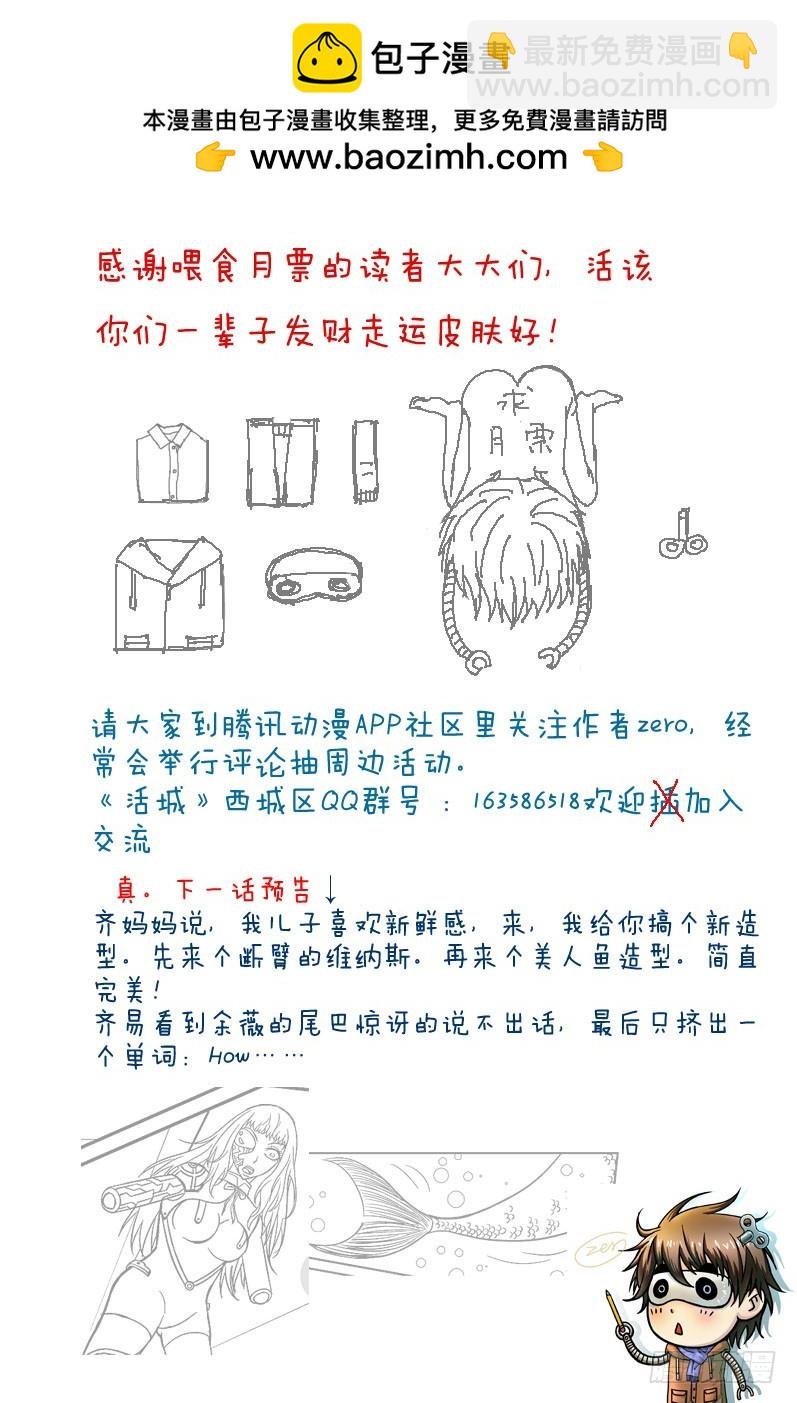 包子漫畫
👇最新免费漫画👇
www.baozimh.com
本漫畫由包子漫畫收集整理，更多免費漫畫請訪問
👉 www.baozimh.com 👈
感谢喂食月票的读者大大们，活该
你们一辈子发财走运皮肤好！
求
月票
请大家到腾讯动漫APP社区里关注作者zero，经
常会举行评论抽周边活动。
《活城》西城区QQ群号：163586518欢迎插加入
交流
真。下一话预告↓
齐妈妈说，我儿子喜欢新鲜感，来，我给你搞个新造
型。先来个断臂的维纳斯。再来个美人鱼造型。简直
完美！
齐易看到余薇的尾巴惊讶的说不出话，最后只挤出一
个单词：How……
zero
腾讯动漫